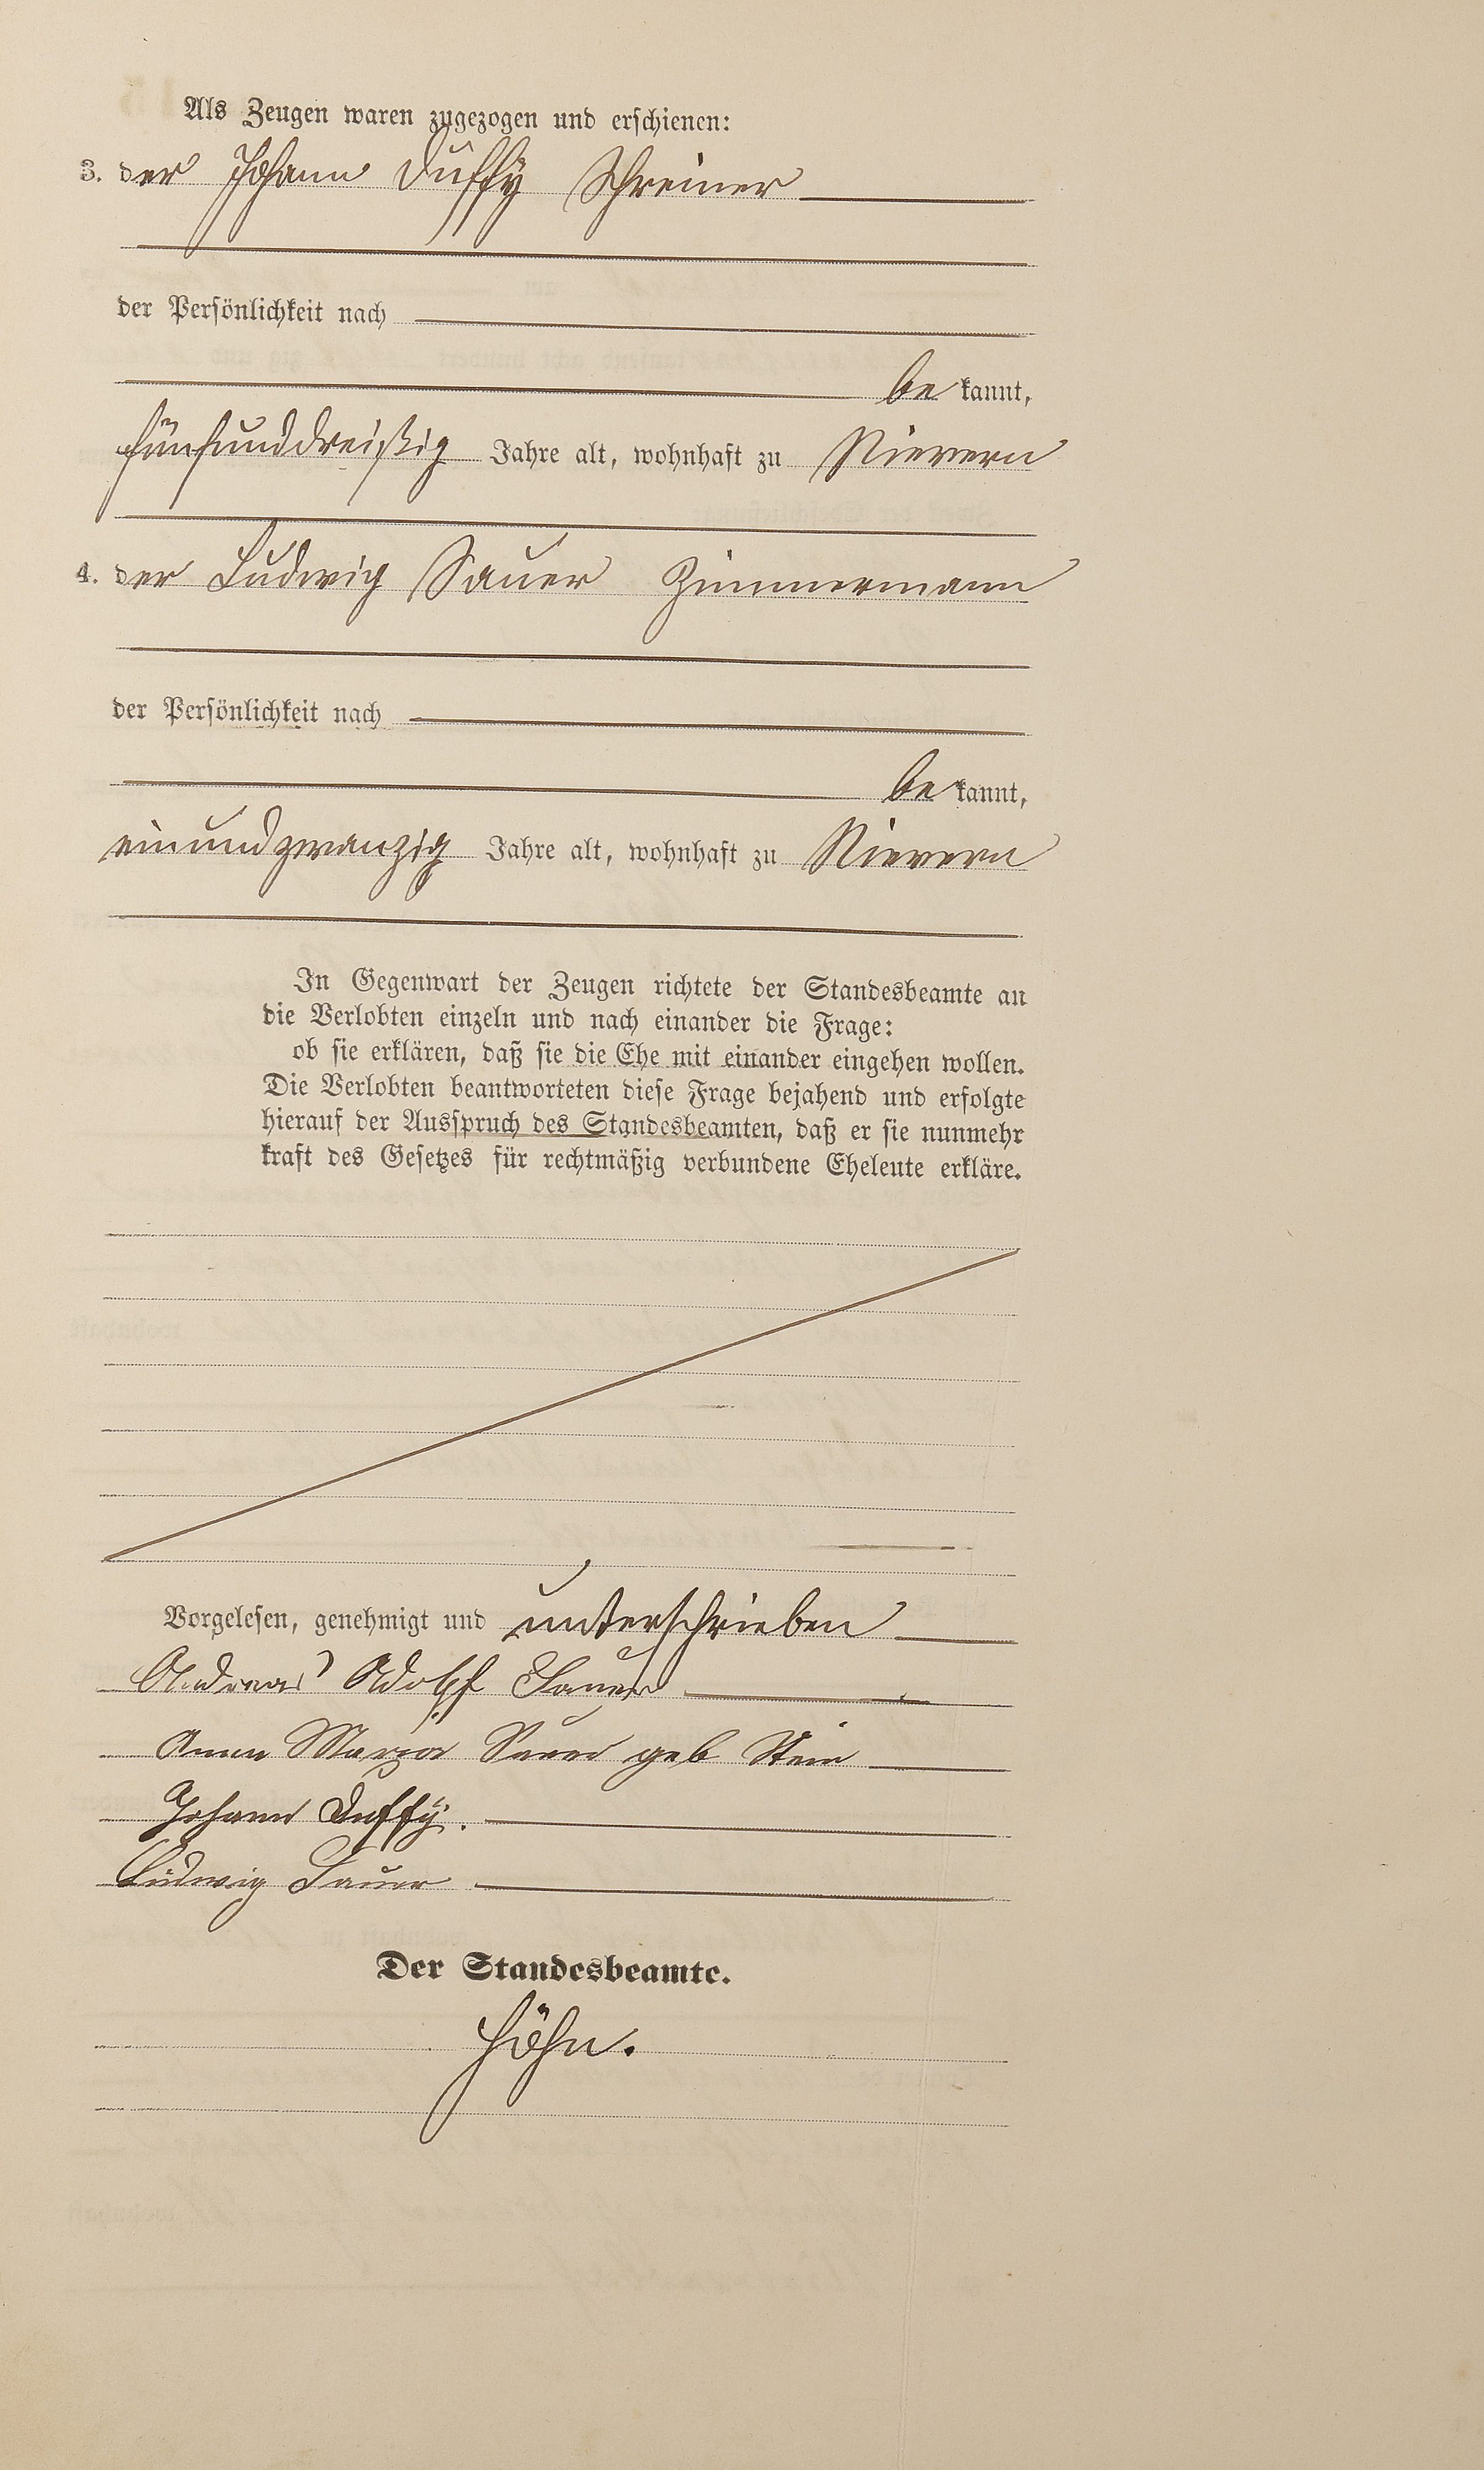 Als Zeugen waren zugezogen und erschienen:
3. der Johann Duffÿ Schreiner
der Persönlichkeit nach
be kannt,
fünfunddreißig Jahre alt, wohnhaft zu Nievern
4. der Ludwig Sauer Zimmermann
der Persönlichkeit nach
be kannt,
einundzwanzig Jahre alt, wohnhaft zu Nievern
In Gegenwart der Zeugen richtete der Standesbeamte an
die Verlobten einzeln und nach einander die Frage:
ob sie erklären, daß sie die Ehe mit einander eingehen wollen.
Die Verlobten beantworteten diese Frage bejahend und erfolgte
hierauf der Ausspruch des Standesbeamten, daß er sie nunmehr
kraft des Gesetzes für rechtmäßig verbundene Eheleute erkläre.
Vorgelesen, genehmigt und unterschrieben
Andreas Adolf Sauer
Anna Maria Sauer geb Stein
Johann Duffÿ.
Ludwig Sauer
Der Standesbeamte.
Höhn.